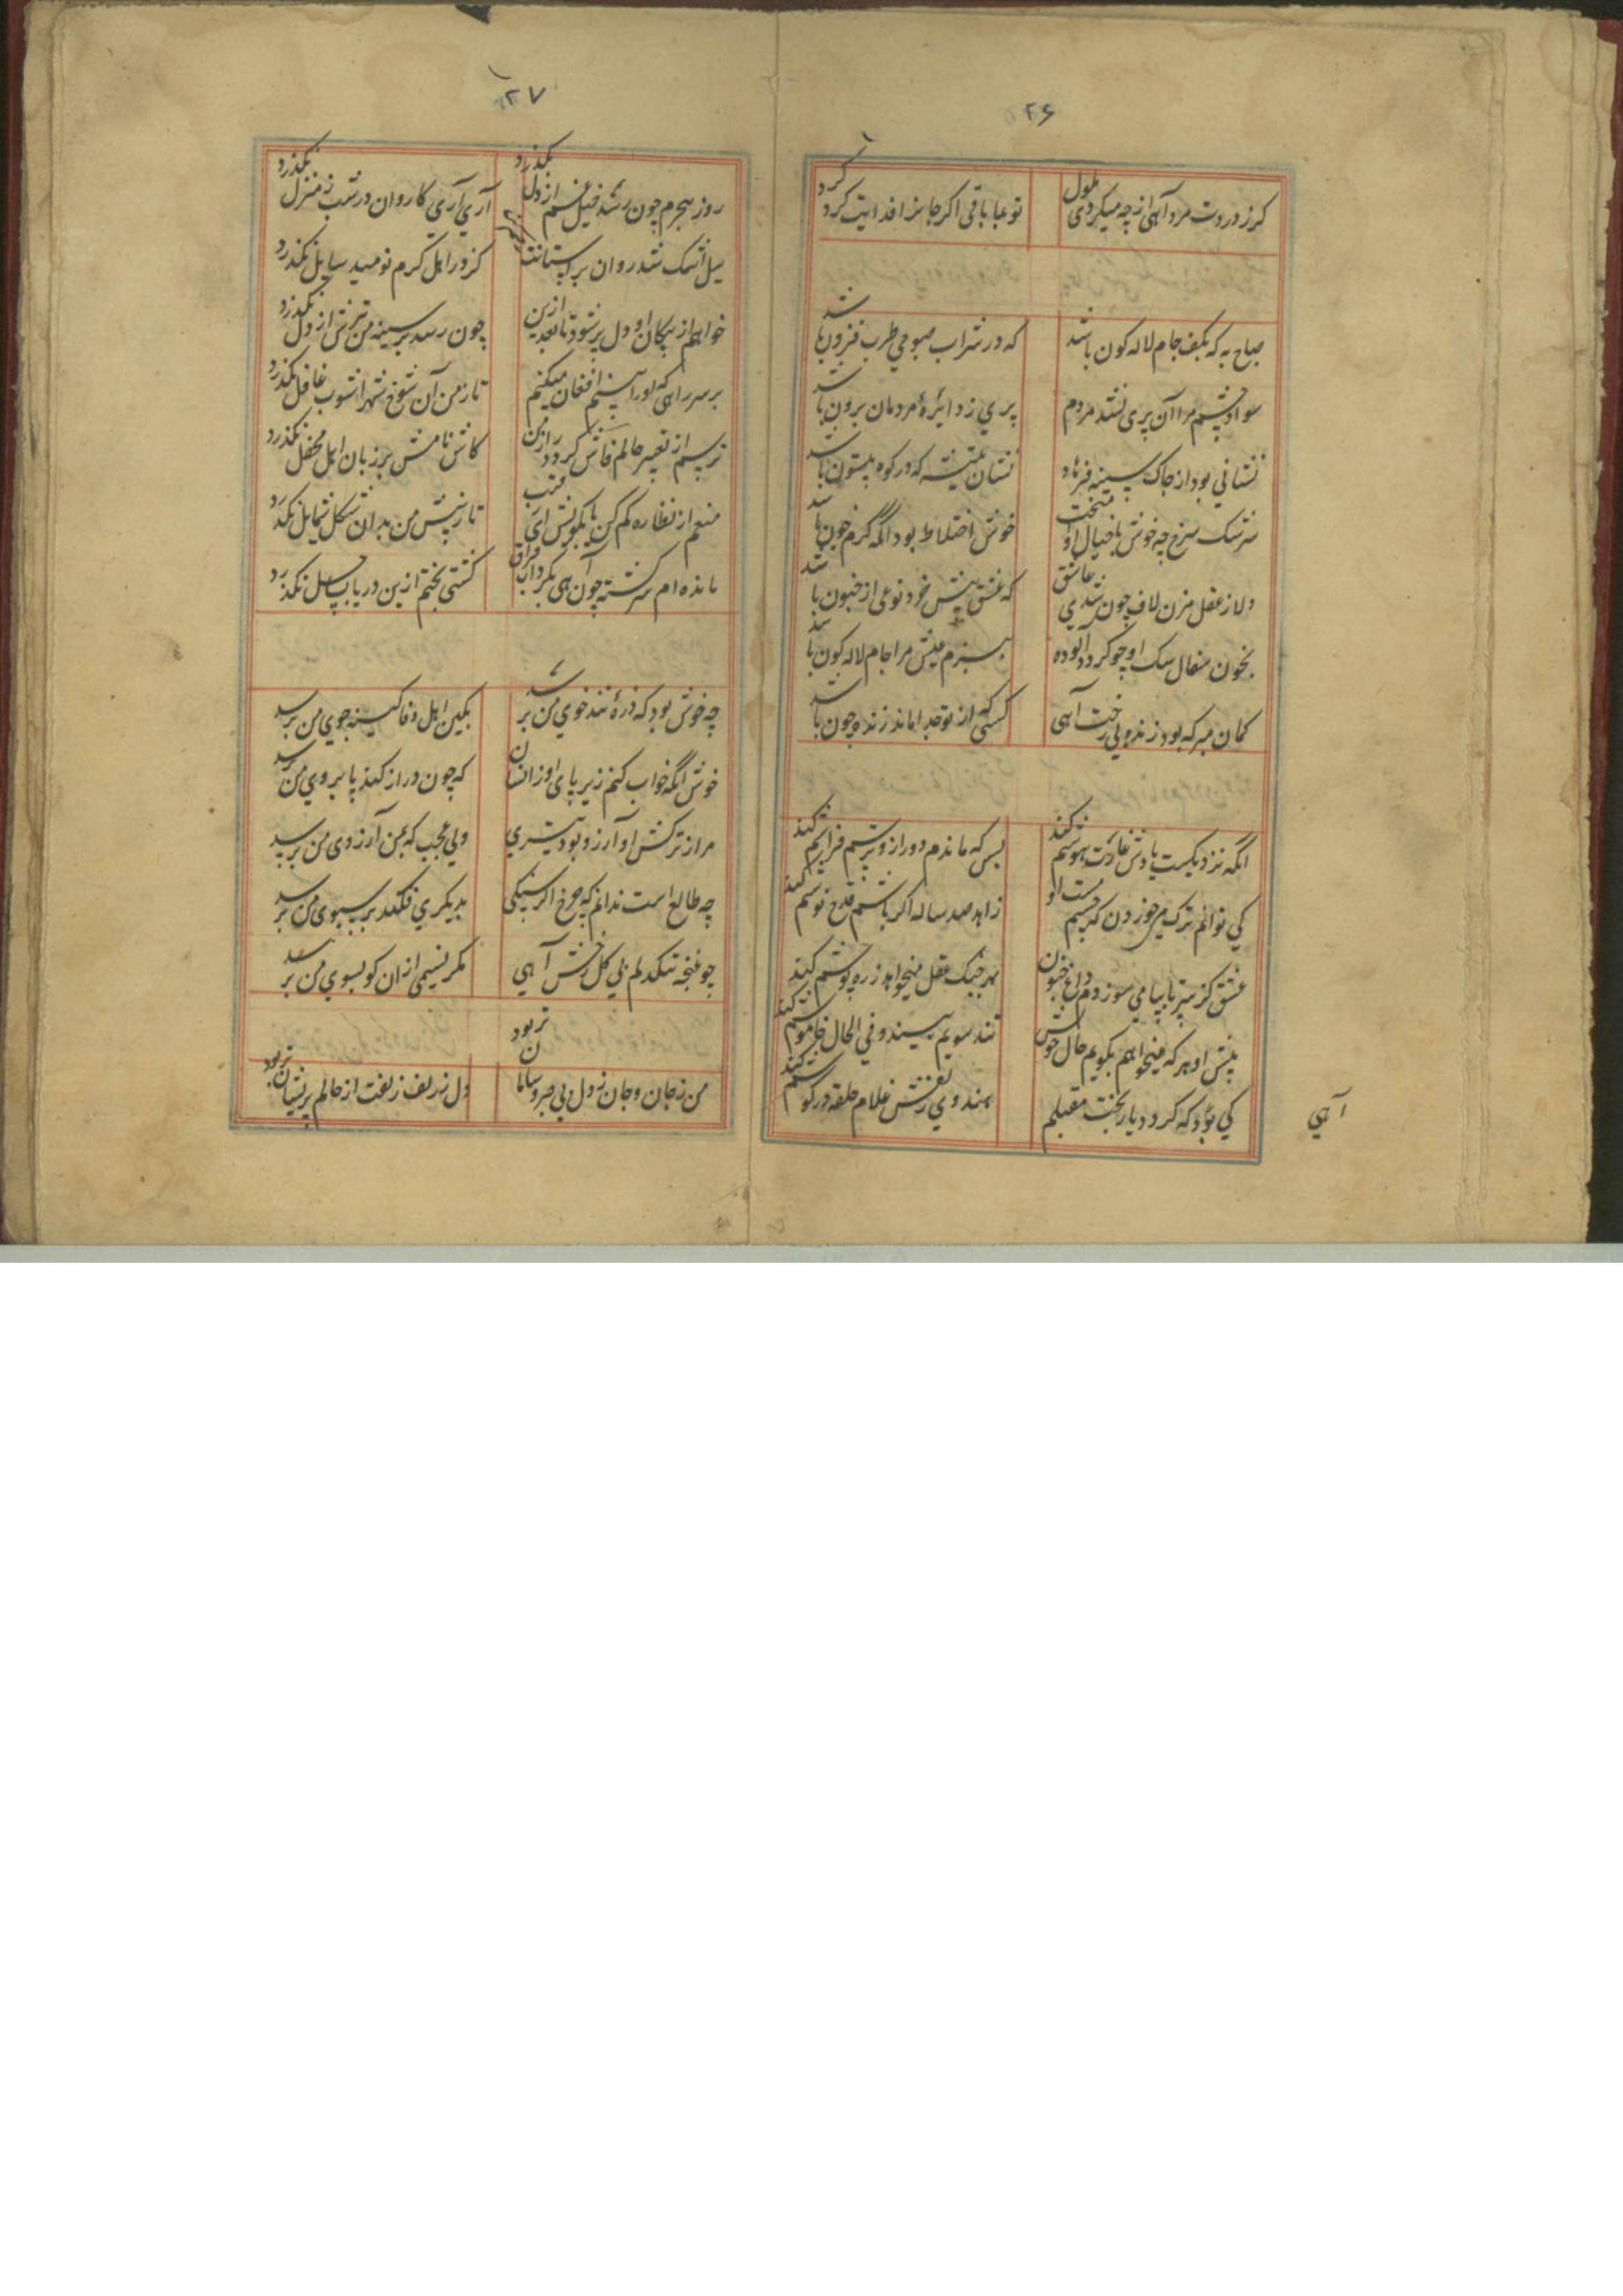 ۲۶
کر ز دردت مرد آهی از چه میکردی ملول
تو عبا باقی اکر جانرا فدایت کرد کرد
صباح به که بکف جام لاله کون باشد
که در شراب صبوحی طرب فزون باشد
سواد چشم مرا آن پری نشد مردم
پری ز دایرهٔ مردمان برون باشد
نشانی بود از چاک سینه فرهاد
نشان تیشه که در کوه بیستون باشد
سرشک سرخ چه خوش با خیال او
خوش اختلاط بود انکه کرم خون باشد
دلا ز عقل مزن لاف چون شدی عاشق
که عشق پیش خرد نوعی از جنون باشد
بخون سفال سک او چو کردد آلوده
ببزم عیش مرا جام لاله کون باشد
کمان مبر که بود زنده بی رخت آهی
کسی که از تو جدا ماند زنده چون باشد
انکه نزدیکست یادش غارت هوشم کند
بس که ماندم دور ازو ترسم فراموشم کند
کی توانم ترک می خوردن که چشم مست او
زاهد صد ساله اکر باشم قدح نوشم کند
عشق کز سر تا بپا می سوزدم داغ جنون
بهر جنک عقل میخواهد زره پوشم کند
پیش او هر که میخواهم بکویم حال خویش
تند سویم بیند و فی الحال خاموشم کند
کی بود که کردد یار بخت مقبلم
هندوی زلفش غلام حلقه در کوشم کند
آهی
۲۷
روز هجرم چون رسد خیل غم از دل نکذرد
آری آری کاروان در شب ز منزل نکذرد
سیل اشک شد روان بر آستانت
کز در اهل کرم نومید سایل نکذرد
خواهم از پیکان او دل پر شود تا بعد ازین
چون رسد بر سینه من تیرش از دل نکذرد
بر سر راهی که او را بینم افغان میکنم
تا ز من آن شوخ شهر آشوب غافل نکذرد
ترسم از تغییر حالم فاش کردد راز من
کاش نامش بر زبان اهل محفل نکذرد
منعم از نظاره کم کن یا بکویش ای رقیب
تا ز پیش من بدان شکل و شمایل نکذرد
مانده ام سرکشته چون آهی بکرداب فراق
کشتی بختم ازین دریا بساحل نکذرد
چه خوش بود که ز ره تند خوی من برسد
بکین اهل وفا کینه جوی من برسد
خوش انکه خواب کنم زیر پای او زانسان
که چون دراز کند پا بروی من برسد
مرا ز ترکش او آرزو بود تیری
ولی عجب که بمن آرزوی من برسد
چه طالع است ندانم که چرخ اکر سنکی
بدیکری فکند بر سبوی من برسد
چو غنچه تنکدلم بی کل رخش آهی
مکر نسیمی از ان کو بسوی من برسد
من ز جان و جان ز دل بی صبر و سامان تر بود
دل ز زلف زلفت از حالم پریشان تر بود